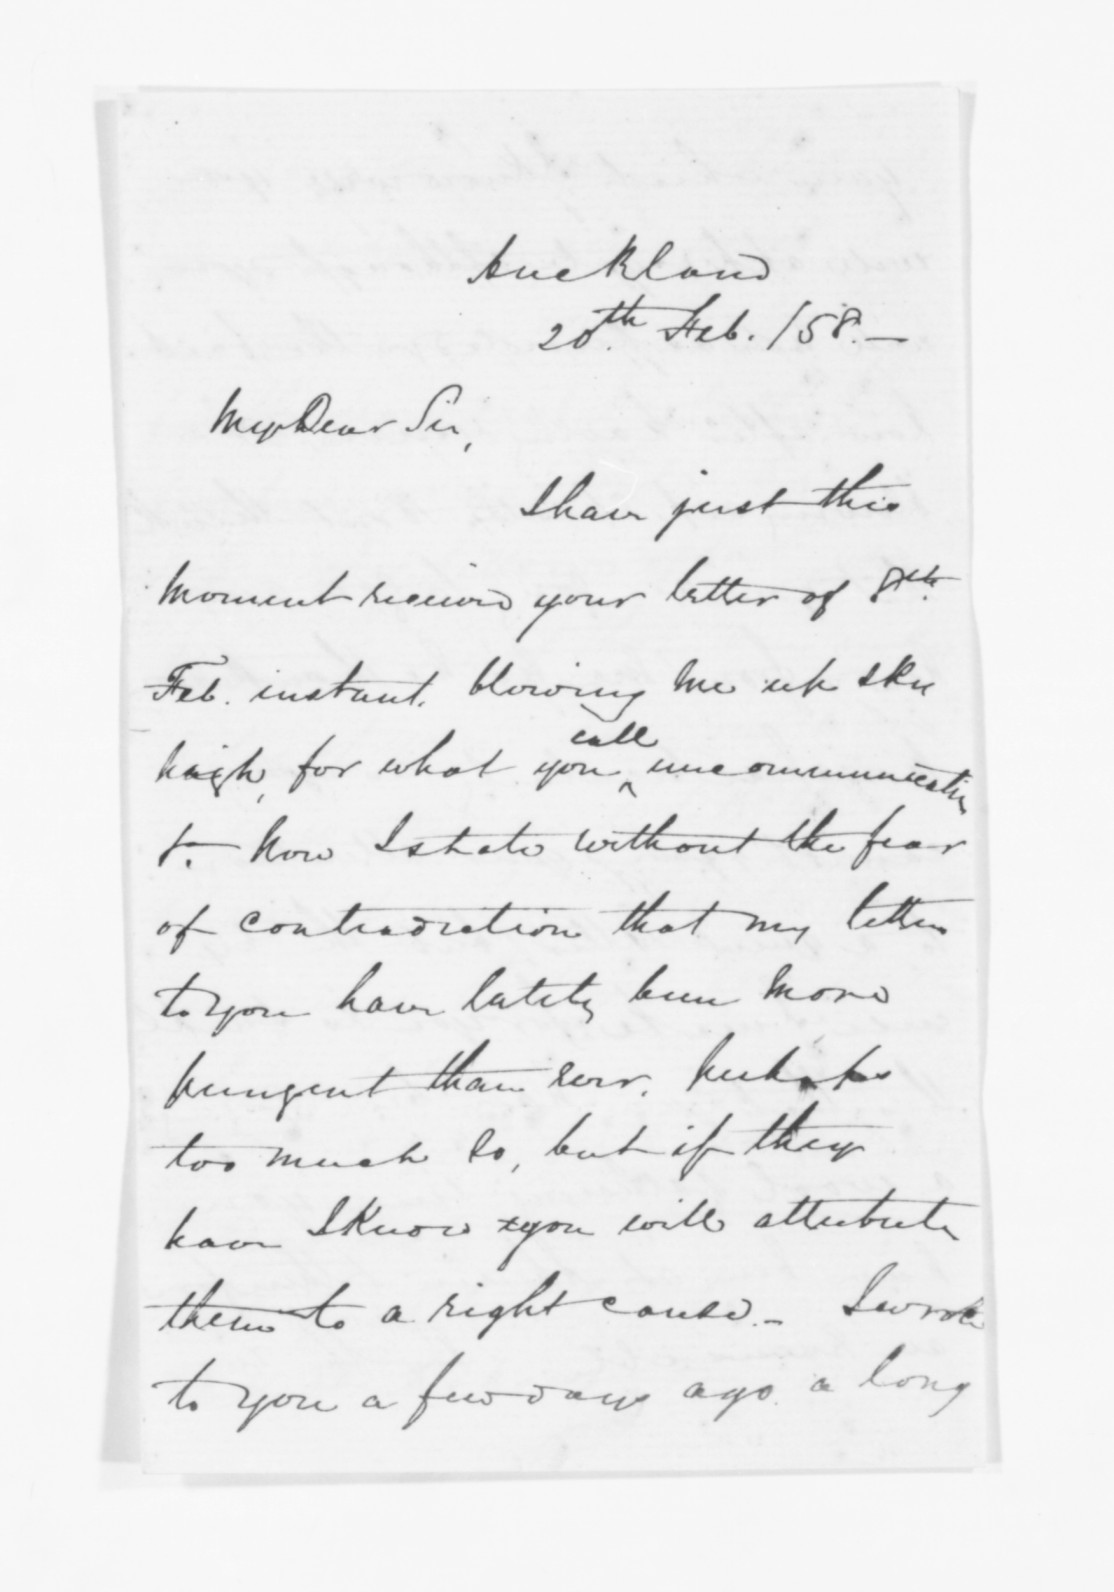 Auckland
20th. Feb. /58.—
My Dear Sir,
I have just this
moment received your letter of 8th.
Feb. instant. blowing me up sky
high, for what you call uncommunicative
&. Now I state without the fear
of contradiction that my letters
to you have lately been more
pungent than ever. perhaps
too much so, but if they
have I know you will attribute
them to a right cause.– I wrote
to you a few days ago. a long